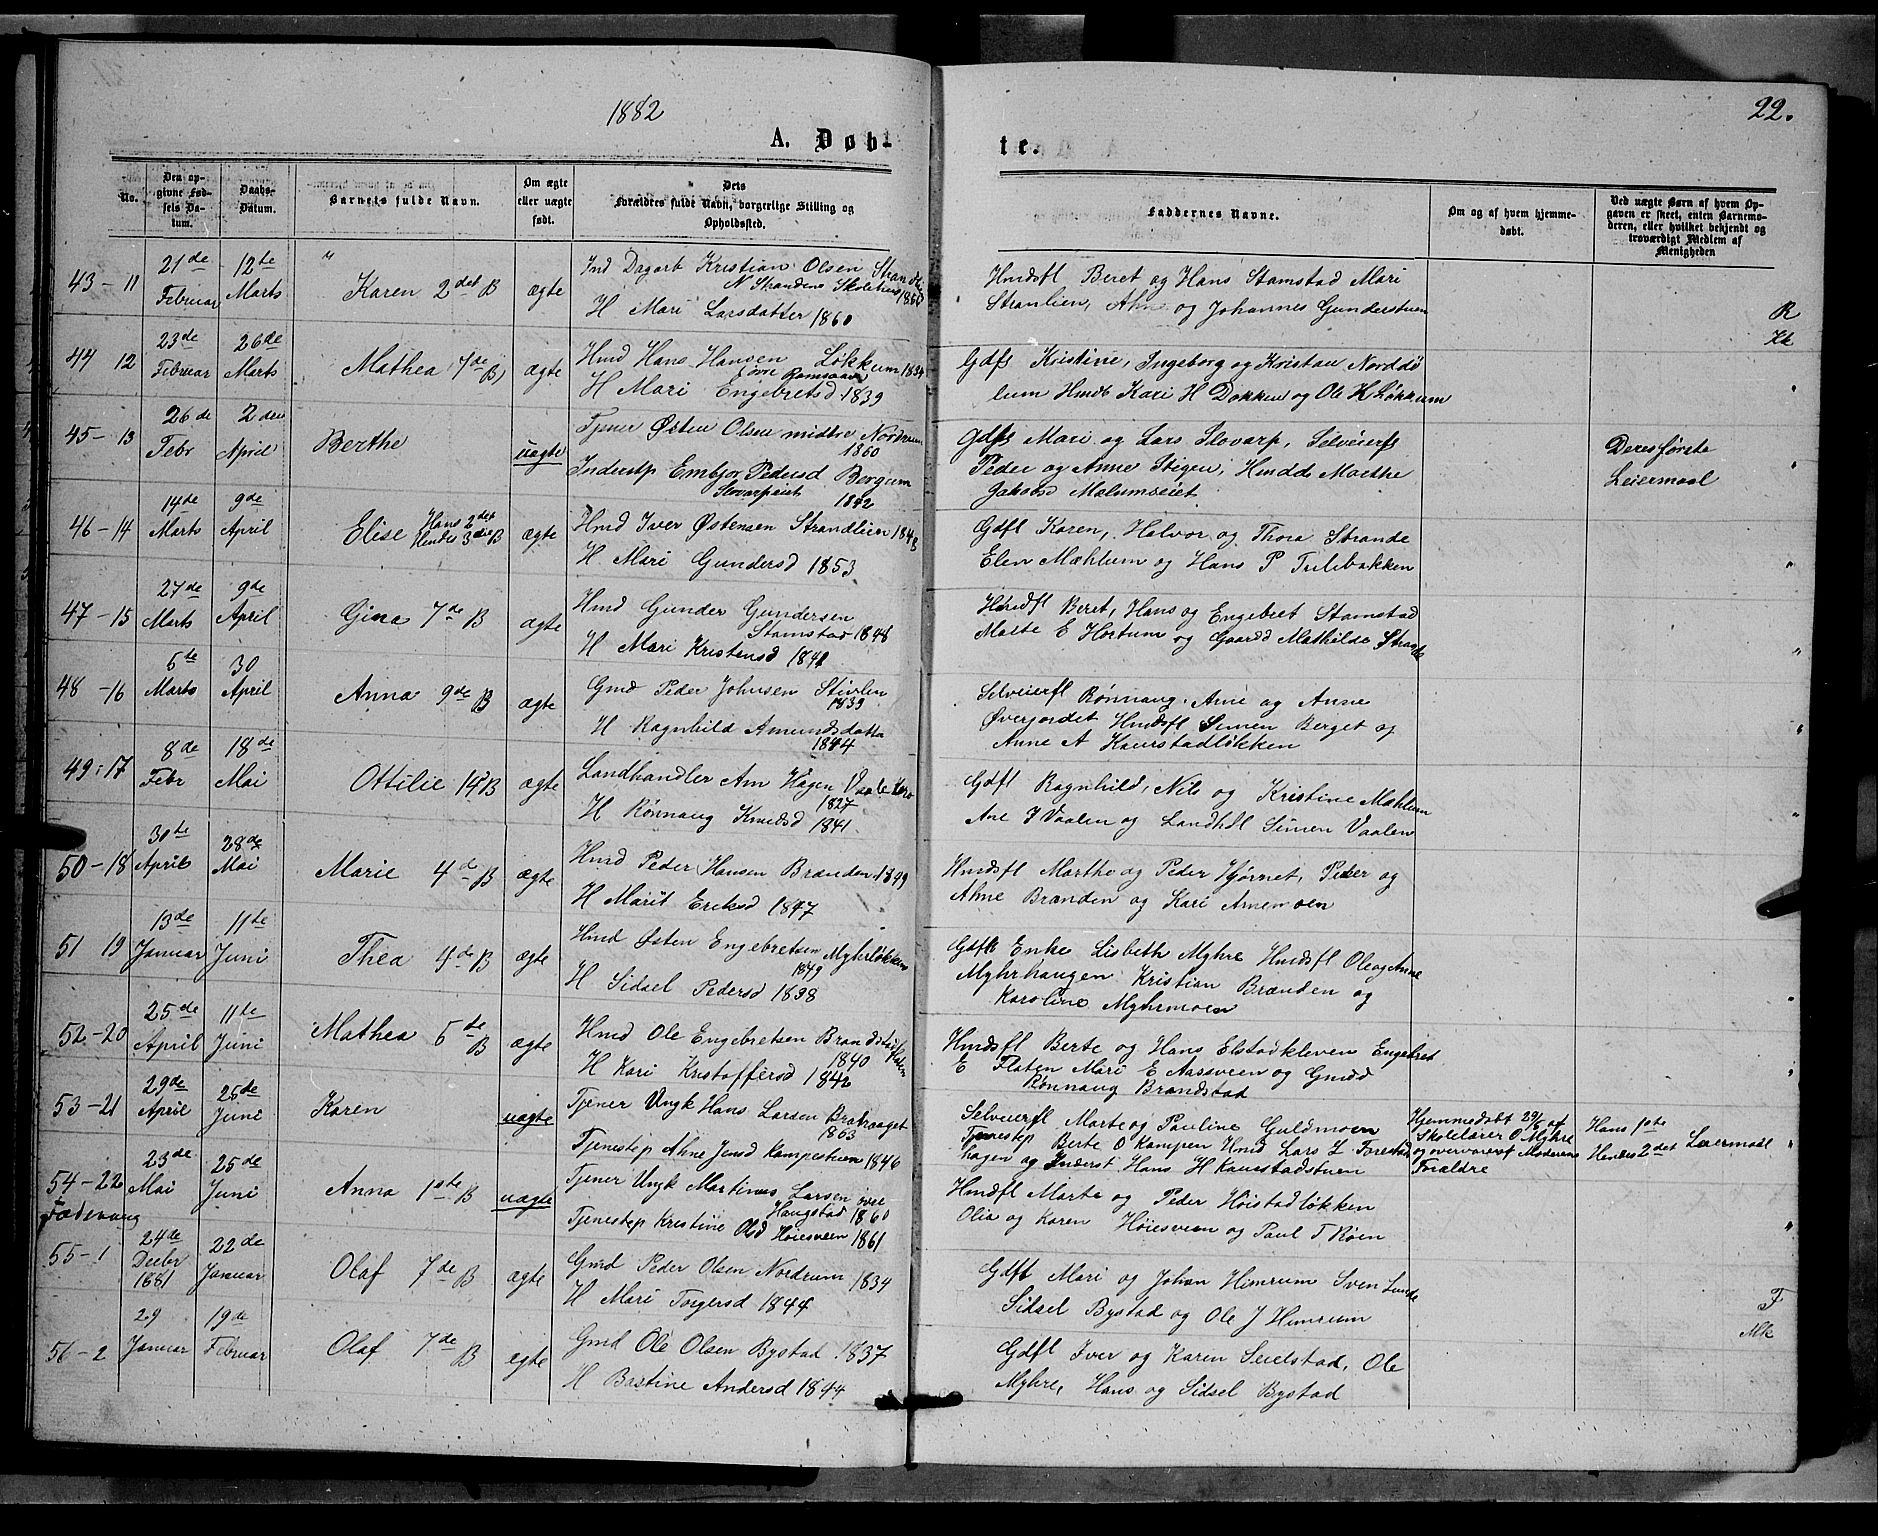 1882
22.
A. Døb-
te.
No.
Den op-
givne Fød-
sels Da-
tum.
Daabs-
Datum.
Barnets fulde Navn.
Om ægte
eller uægte
født.
Dets
Forældres fulde Navn, borgerlige Stilling og
Opholdssted.
Faddernes Navne.
Om og af hvem hjemme-
døbt.
Ved uægte Børn af hvem Op-
gaven er skeet, enten Barnemo-
deren, eller hvilket bekjendt og
troværdigt Medlem af
Menigheden
43-11
21de
Februar
12te
Marts
Karen 2det B
ægte
Ind Dagarb Kristian Olsen
N Strandens Skolehus 1860
H Mari Larsdatter 1860
Hmdsfl Beret og Hans Stamstad Mari
Stranlien, Ahne og Johannes Gunderstuen
R
Kk
44 12
23de
Februar
26de
Marts
Mathea 7de B
ægte
Hmd Hans Hansen Løkkum 1834
H Mari Engebretsd 1839
Gdfs Kristine, Ingeborg og Kristian Norddø
lum Hmdb Kari H Dokken og Ole H Løkkum
45-13
26de
Febr
2den
April
Berthe
uægte
Tjener Østen Olsen midtre Nordrum
1860
Inderstp Embjør Pedersd Bergum
1842
Gdfs Mari og Lars Slovarp, Selveierfl
Peder og Anne Stigen, Hmdd Marthe
Jakobsd Malumseiet
Deres første
Leiermaal
46-14
14de
Marts
9de
April
Elise Hans 2det
Hendes 3die B
ægte
Hmd Iver Østensen Strandlien 1848
H Mari Gundersd 1853
Gdfl Karen, Halvor og Thora Strande
Elen Mæhlum og Hans P Tulebakken
47-15
27de
Marts
9de
April
Gina 7de B
ægte
Hmd Gunder Gundersen
Stamstad 1848
H Mari Kristensd 1841
Hmdfl Beret, Hans og Engebret Stamstad
Marte E Hortum og Gaardd Mathilde Strande
48-16
5te
Marts
30
April
Anna 9de B
ægte
Gmd Peder Johnsen Stivlen
1839
H Ragnhild Amundsdatter
1844
Selveierfl Rønnaug, Arne og Anne
Øverjordet Hmdsfl Simen Berget og
Anne A Kaurstadløkken
49-17
8de
Febr
18de
Mai
Ottilie 14d B
ægte
Landhandler Am Hagen Vaale
1827
H Rønnaug Knudsd 1841
Gdfl Ragnhild, Nils og Kristine Mæhlum
Ane J Vaalen og Landhdl Simen Vaalen
50-18
30te
April
28de
Mai
Marie 4de B
ægte
Hmd Peder Hansen Brænden 1849
H Marit Eriksd 1847
Hmdsfl Marthe og Peder Hjørnet, Peder og
Ahne Brænden og Kari Arnemoen
51 19
13de
Januar
11te
Juni
Thea 4de B
ægte
Hmd Østen Engebretsen Myhrløkken
1849
H Sidsel Pedersd 1838
Gdfk Enke Lisbeth Myhre Hmdsfl Ole og Anne
Myhrhaugen Kristian Brænden og
Karoline Myhrmoen
52-20
25de
April
11te
Juni
Mathea 5te B
ægte
Hmd Ole Engebretsen Brandstad
flaten
1840
H Kari Kristoffersd 1842
Hmdsfl Berte og Hans Elstadkleven Engebret
E Flaten Mari E Aasveen og Gmdd
Rønnaug Brandstad
53-21
29de
April
25de
Juni
Karen
uægte
Tjener Ungk Hans Larsen Bratvaaget
1863
Tjenestep Ahne Jensd Kampestuen 1846
Selveierfl Marte og Pauline Guldmoen
Tjenestep Berte O Kampen Hmd Lars L Forestad
hagen og Inderst Hans H Kaurstadstuen
Hjemmedøbt 29/5 af
Skolelærer O Myhre
og overværet Moderens
Forældre
Hans 1ste
Hendes 2det Leiermaal
54-22
23de
Mai
25de
Juni
Anna 1ste B
uægte
Tjener Ungk Martinus Larsen øvre
Haugstad 1860
Tjenestep Kristine Olsd Høiesveen 1861
Hmdsfl Marte og Peder Høistadløkken
Olia og Karen Høiesveen og Paul T Røen
Fodevang
55-1
24de
Decbr
1881
22de
Januar
Olaf 7de B
ægte
Gmd Peder Olsen Nordrum 1834
H Mari Torgersd 1844
Gdfl Mari og Johan Himrum Sven Lunde
Sidsel Bystad og Ole J Himrum
F
Mk
56-2
29
Januar
19de
Februar
Olaf 7de B
ægte
Gmd Ole Olsen Bystad 1837
H Bastine Andersd 1844
Gdfl Iver og Karen Seielstad, Ole
Myhre, Hans og Sidsel Bystad